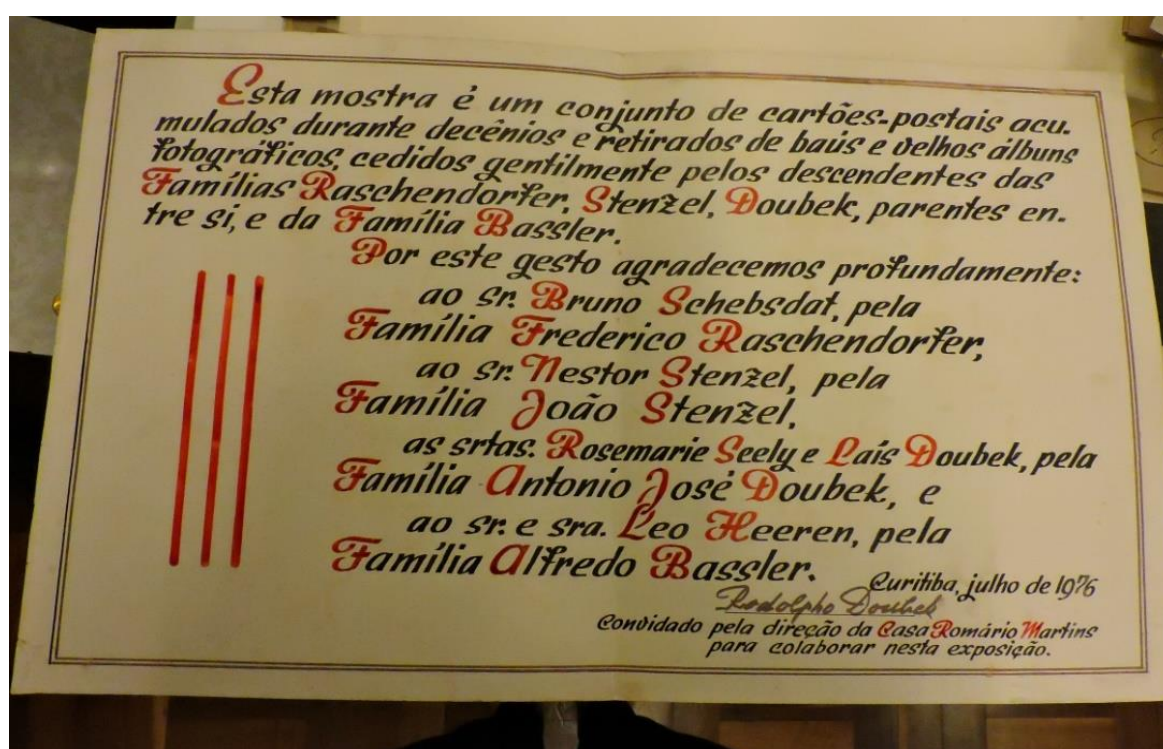 Esta mostra é um conjunto de cartões-postais acu-
mulados durante decênios e retirados de baús e velhos álbuns
fotográficos, cedidos gentilmente pelos descendentes das
Famílias Raschendorfer, Stenzel, Doubek, parentes en-
tre si, e da Família Bassler.
Por este gesto agradecemos profundamente:
ao sr. Bruno Schebsdat, pela
Família Frederico Raschendorfer,
ao sr. Nestor Stenzel, pela
Família João Stenzel,
as srtas. Rosemarie Seely e Laís Doubek, pela
Família Antonio José Doubek, e
ao sr. e sra. Leo Heeren, pela
Família Alfredo Bassler.
Curitiba, julho de 1976
Rodolpho Doubek
Convidado pela direção da Casa Romário Martins
para colaborar nesta exposição.